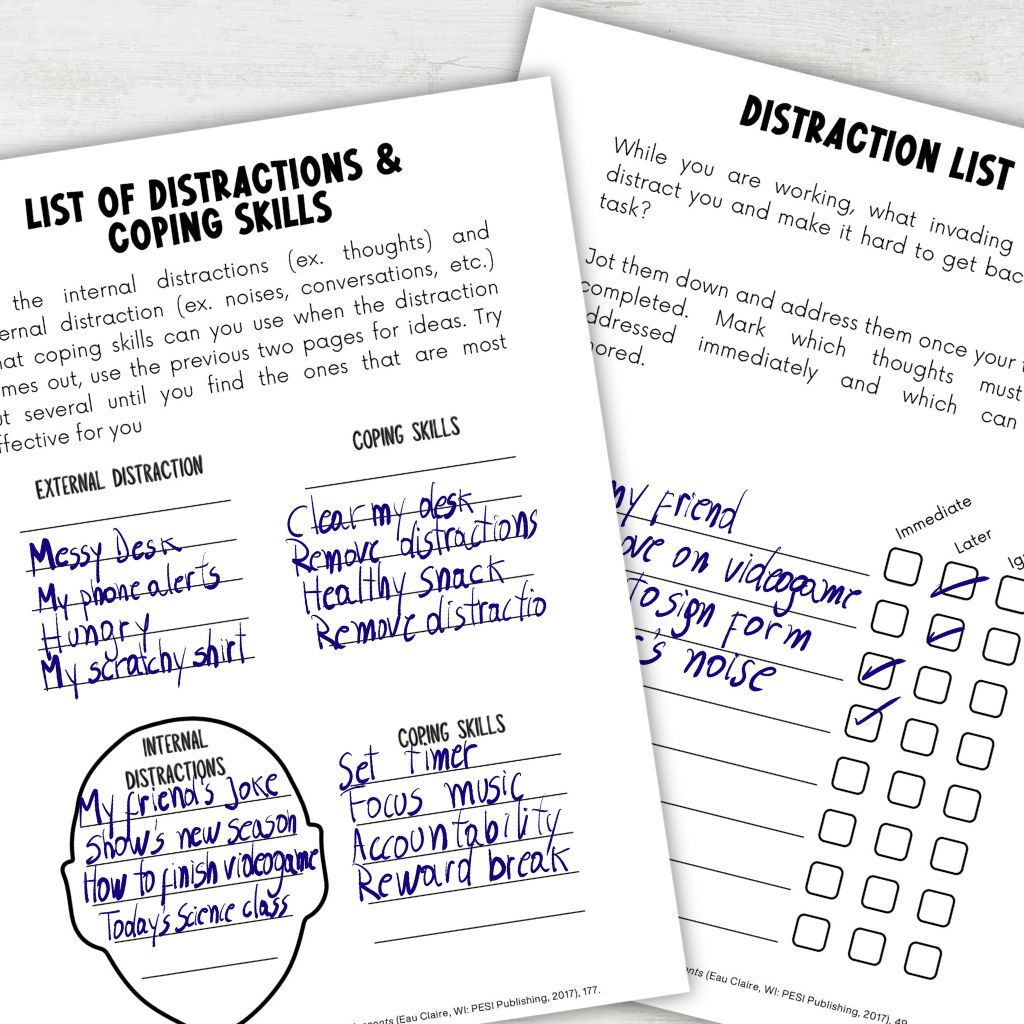 LIST OF DISTRACTIONS &
COPING SKILLS
the internal distractions (ex. thoughts) and
ernal distraction (ex. noises, conversations, etc.)
hat coping skills can you use when the distraction
mes out, use the previous two pages for ideas. Try
ut several until you find the ones that are most
ffective for you
EXTERNAL DISTRACTION
Messy Desk
My phone alerts
Hungry
My scratchy shirt
COPING SKILLS
Clear my desk
Remove distractions
Healthy snack
Remove distractio
INTERNAL
DISTRACTIONS
My friend's Joke
Show's new season
How to finish videogame
Today's Science class
COPING SKILLS
Set Timer
Focus music
Accountability
Reward break
(Eau Claire, WI: PESI Publishing, 2017), 177.
DISTRACTION LIST
While you are working, what invading
distract you and make it hard to get bac
task?
Jot them down and address them once your
completed. Mark which thoughts must
ddressed immediately and which can
nored.
Immediate
Later
Ig
my Friend
ove on videogame
To sign Form
's noise
ents (Eau Claire, WI: PESI Publishing, 2017), 49